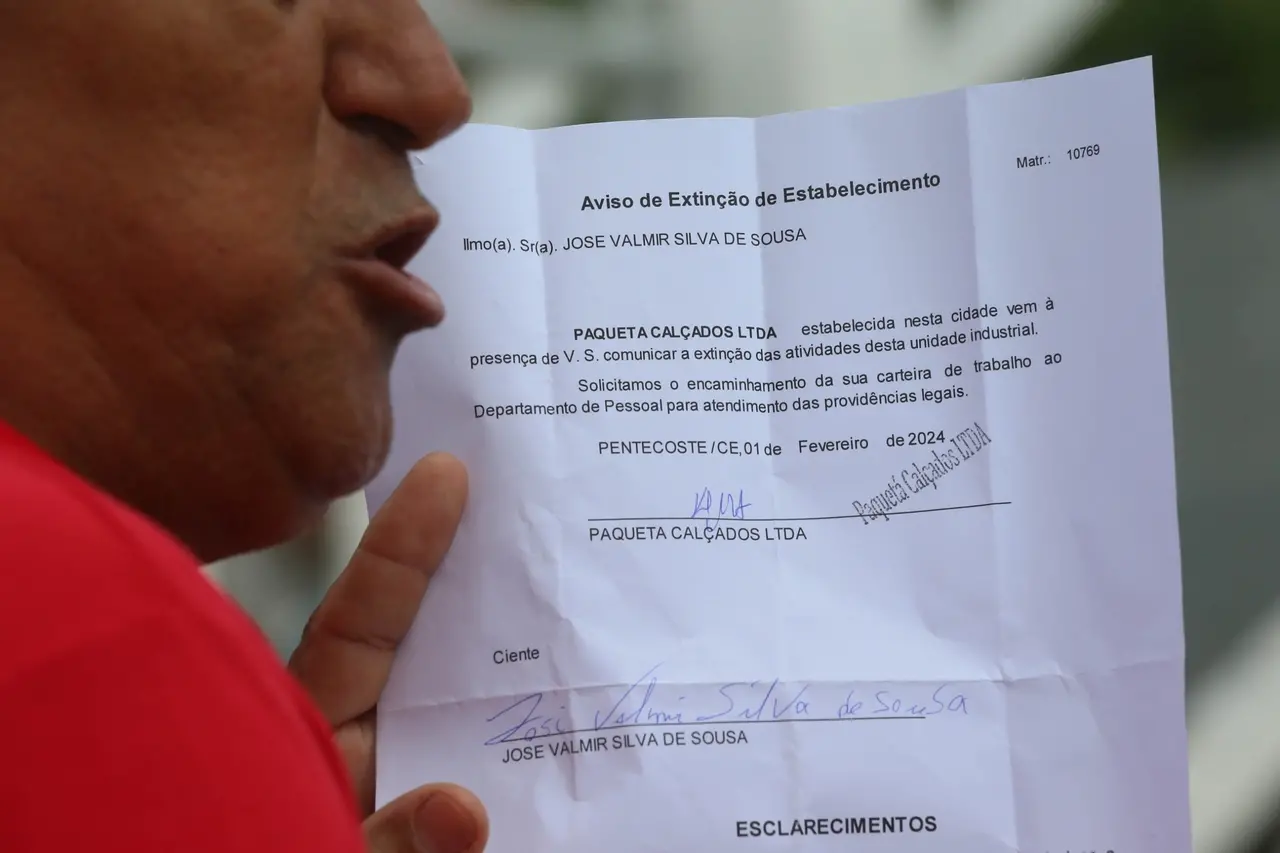 Matr.: 10769
Aviso de Extinção de Estabelecimento
Ilmo(a). Sr(a). JOSE VALMIR SILVA DE SOUSA
PAQUETA CALÇADOS LTDA estabelecida nesta cidade vem à
presença de V. S. comunicar a extinção das atividades desta unidade industrial.
Solicitamos o encaminhamento da sua carteira de trabalho ao
Departamento de Pessoal para atendimento das providências legais.
PENTECOSTE/CE, 01 de Fevereiro de 2024
Paquetá Calçados LTDA
PAQUETA CALÇADOS LTDA
Ciente
José Valmir Silva de Sousa
JOSE VALMIR SILVA DE SOUSA
ESCLARECIMENTOS